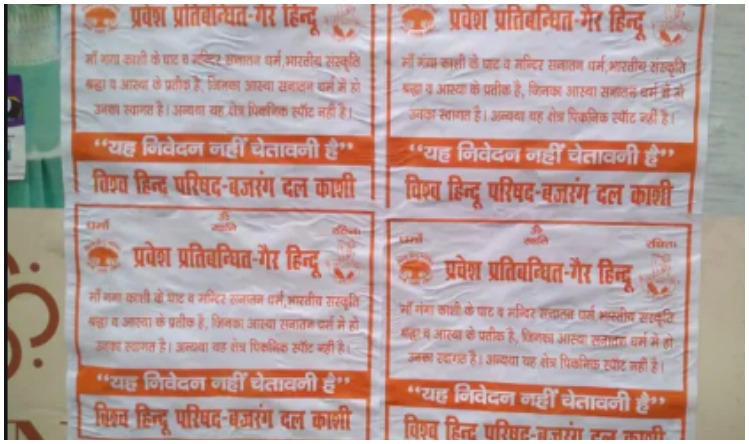 प्रवेश प्रतिबन्धित-गैर हिन्दू
माँ गंगा काशी के घाट व मन्दिर सनातन धर्म,भारतीय संस्कृति
श्रद्धा व आस्था के प्रतीक है, जिनका आस्था सनातन धर्म में हो
उनका स्वागत है। अन्यथा यह क्षेत्र पिकनिक स्पॉट नहीं है।
“यह निवेदन नहीं चेतावनी है”
विश्व हिन्दू परिषद-बजरंग दल काशी
प्रवेश प्रतिबन्धित-गैर हिन्दू
माँ गंगा काशी के घाट व मन्दिर सनातन धर्म,भारतीय संस्कृति
श्रद्धा व आस्था के प्रतीक है, जिनका आस्था सनातन धर्म में हो
उनका स्वागत है। अन्यथा यह क्षेत्र पिकनिक स्पॉट नहीं है।
“यह निवेदन नहीं चेतावनी है”
विश्व हिन्दू परिषद-बजरंग दल काशी
धर्मो ॐ रक्षति रक्षितः
प्रवेश प्रतिबन्धित-गैर हिन्दू
माँ गंगा काशी के घाट व मन्दिर सनातन धर्म,भारतीय संस्कृति
श्रद्धा व आस्था के प्रतीक है, जिनका आस्था सनातन धर्म में हो
उनका स्वागत है। अन्यथा यह क्षेत्र पिकनिक स्पॉट नहीं है।
“यह निवेदन नहीं चेतावनी है”
विश्व हिन्दू परिषद-बजरंग दल काशी
धर्मो ॐ रक्षति रक्षितः
प्रवेश प्रतिबन्धित-गैर हिन्दू
माँ गंगा काशी के घाट व मन्दिर सनातन धर्म भारतीय संस्कृति
श्रद्धा व आस्था के प्रतीक है, जिनका आस्था सनातन धर्म में हो
उनका स्वागत है। अन्यथा यह क्षेत्र पिकनिक स्पॉट नहीं है।
“यह निवेदन नहीं चेतावनी है”
विश्व हिन्दू परिषद-बजरंग दल काशी